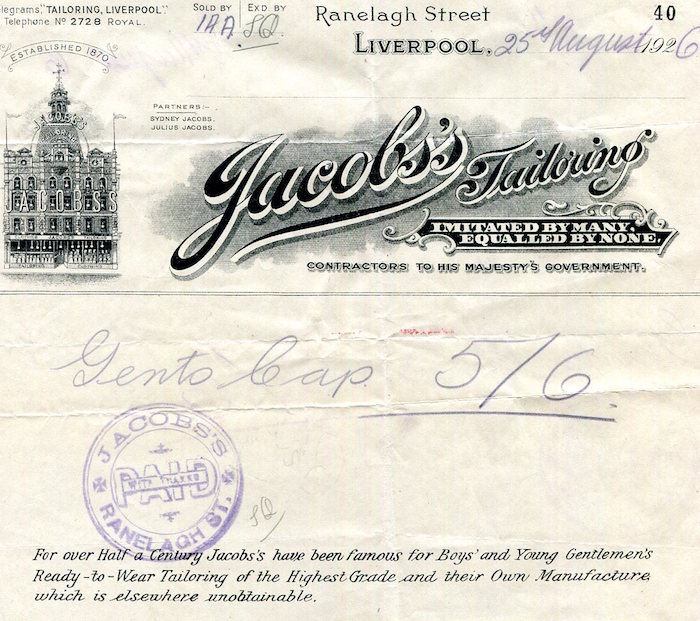 legrams, "TAILORING, LIVERPOOL."
Telephone Nº 2728 ROYAL.
SOLD BY
EXD. BY
Ranelagh Street
LIVERPOOL, 25th August 1926
40
ESTABLISHED 1870
PARTNERS:-
SYDNEY JACOBS.
JULIUS JACOBS.
JACOBS'S
JACOBS'S
Jacobs's Tailoring
IMITATED BY MANY.
EQUALLED BY NONE.
CONTRACTORS TO HIS MAJESTY'S GOVERNMENT.
Gents Cap. 5/6
JACOBS'S
PAID
WITH THANKS
RANELAGH ST.
For over Half a Century Jacobs's have been famous for Boys' and Young Gentlemen's
Ready-to-Wear Tailoring of the Highest Grade and their Own Manufacture
which is elsewhere unobtainable.